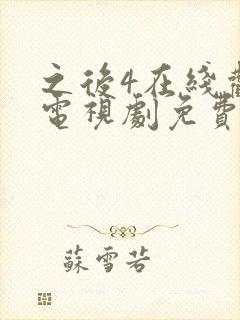 之後4在綫觀
電視劇免費
蘇雪若